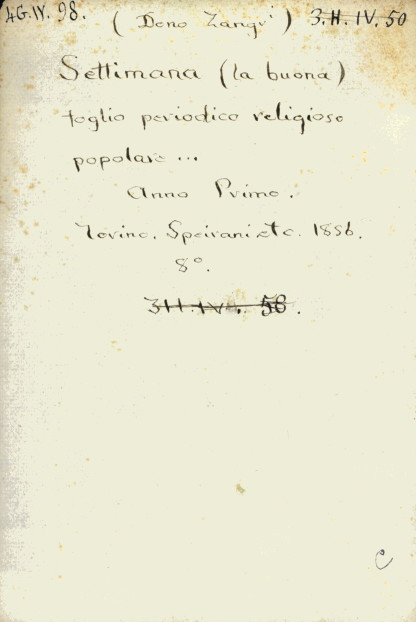 4G.IV.98. (Dono Zangri) 3.H.IV.50
Settimana (la buona)
foglio periodico religioso
popolare ...
Anno Primo.
Torino. Speirani etc. 1856.
8°.
3H.IV. 58.
C